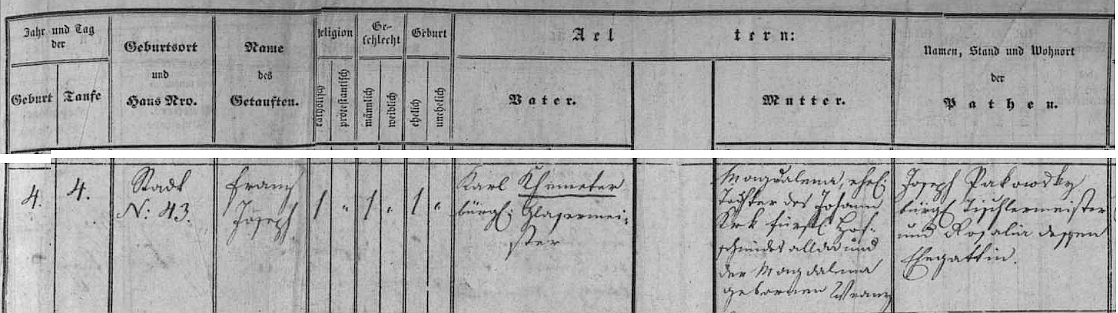 Jahr und Tag
der
Geburt
Taufe
Geburtsort
und
Haus Nro.
Name
des
Getauften.
Religion
katholisch
protestantisch
Ge-
schlecht
männlich
weiblich
Geburt
ehelich
unehelich
Aeltern:
Vater.
Mutter.
Namen, Stand und Wohnort
der
Pathen.
4.
4.
Stadt
N: 43.
Franz
Joseph
1
"
1
"
1
"
Karl
bürgl: Glasermei-
ster
Magdalena, ehel.
Tochter des Johann
fürstl. Hof-
schmides allda und
der Magdalena
gebornen
Joseph
bürgl Tischlermeister
und Rosalia dessen
Ehegattin.